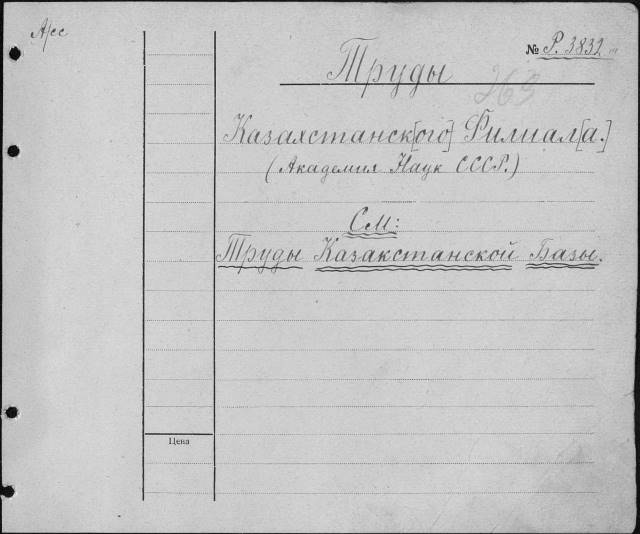 А/сс
№ Р. 3832
Труды
263
Казахстанск[ого] Филиал[а.]
(Академия Наук СССР.)
См:
Труды Казакстанской Базы.
Цена